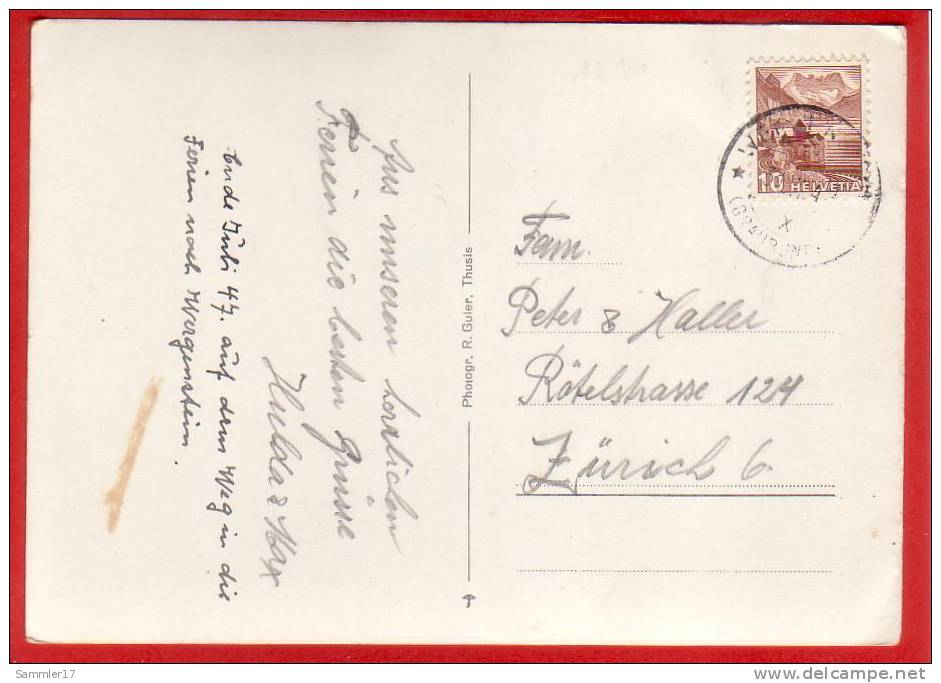 Aus unseren herzlichen
Ferien die besten Grüsse
Hulda & Max
Ende Juli 47. auf dem Weg in die
Ferien nach Wergenstein.
Photogr. R. Guler, Thusis
10 HELVETIA
X
Fam.
Peter & Haller
Rötelstrasse 124
Zürich 6
Sammler17
www.delcampe.net